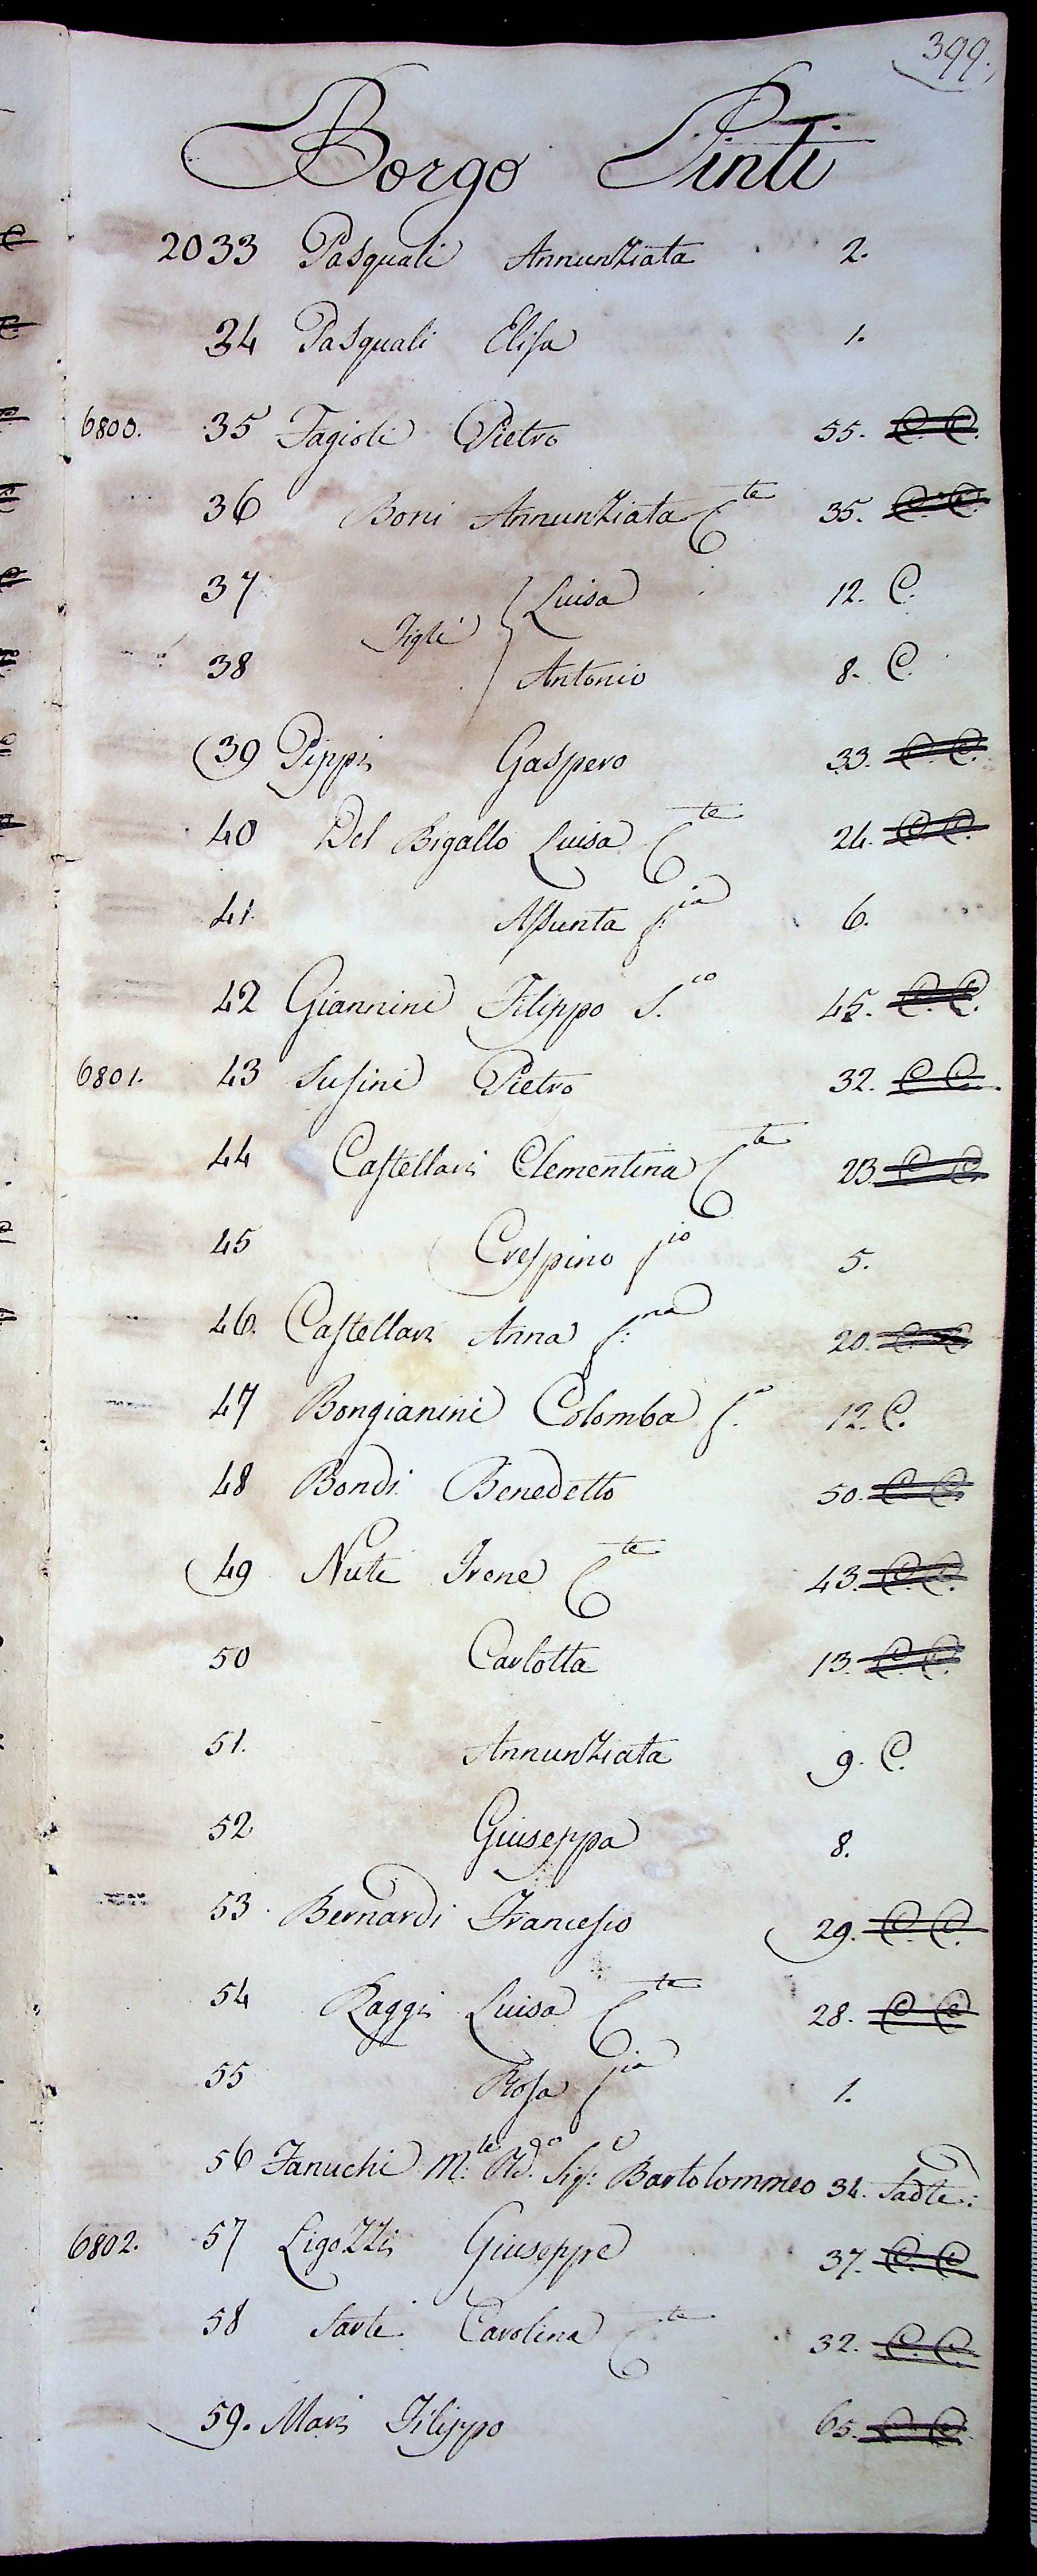 399.
Borgo Pinti
2033 Pasquali Annunziata 2.
34 Pasquali Elisa 1.
6800. 35 Fagioli Pietro 55. C. C.
36 Boni Annunziata C.te 35. C. C.
37 Luisa 12. C.
Figli
38 Antonio 8. C.
39 Pippi Gaspero 33. C. C.
40 Del Bigallo Luisa C.te 24. C. C.
41. Assunta f.ia 6.
42 Giannini Filippo S.co 45. C. C.
6801. 43 Susini Pietro 32. C. C.
44 Castellari Clementina C.te 23. C. C.
45 Crespino f.io 5.
46. Castellari Anna f:na 20. C. C.
47 Bongianini Colomba f.a 12. C.
48 Bondi Benedetto 50. C. C.
49 Nuti Irene C.te 43. C. C.
50 Carlotta 13. C. C.
51. Annunziata 9. C.
52 Giuseppa 8.
53 Bernardi Francesco 29. C. C.
54 Raggi Luisa C.te 28. C. C.
55 Rosa f.ia 1.
56 Fanuchi M.te Sig.e Bartolommeo 34. Sadte:
6802. 57 Ligozzi Giuseppe 37. C. C.
58 Sarti Carolina C.te 32. C. C.
59. Mari Filippo 65. C. C.